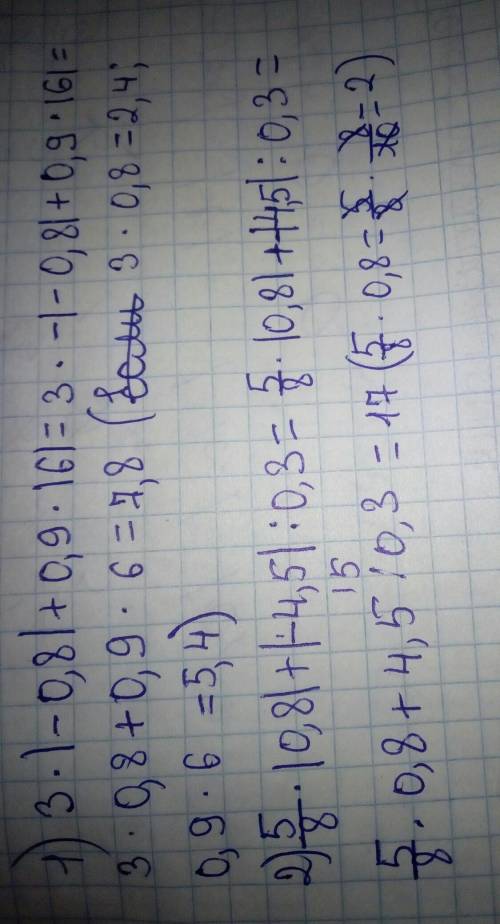 1) 3·|-0,8|+0,9·|6|=3·-|-0,8|+0,9·|6|=
3·0,8+0,9·6=7,8 ( 3·0,8=2,4;
0,9·6=5,4)
2) 5/8·|0,8|+|-4,5|:0,3=5/8·|0,8|+|4,5|:0,3=
15
5/8·0,8+4,5:0,3=17 (5/8·0,8=5/8·8/10=2)